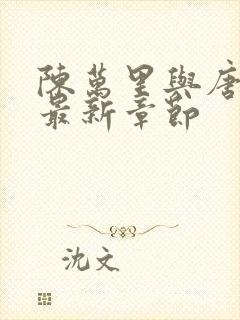 陳萬里與唐
最新章節
沈文